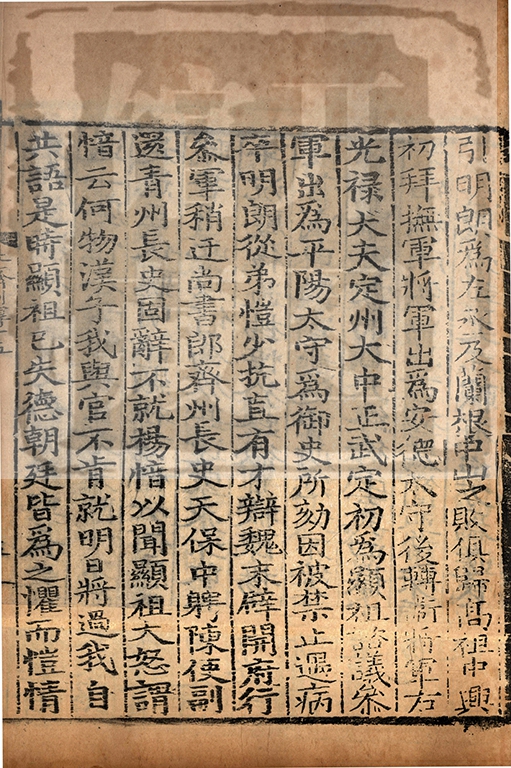 引明朗爲左丞及蘭根中山之敗俱歸髙祖中興
初拜撫軍將軍出爲安德太守後轉衛將軍右
光禄大夫定州大中正武定初爲顯祖諮議參
軍出爲平陽太守爲御史所劾因被禁止遇病
卒明朗從弟愷少抗直有才辯魏末辟開府行
叅軍稍迁尚書郎齊州長史天保中聘陳使副
還青州長史固辭不就楊愔以聞顯祖大怒謂
愔云何物漢子我與官不肯就明日將過我自
共語是時顯祖已失德朝廷皆爲之懼而愷情